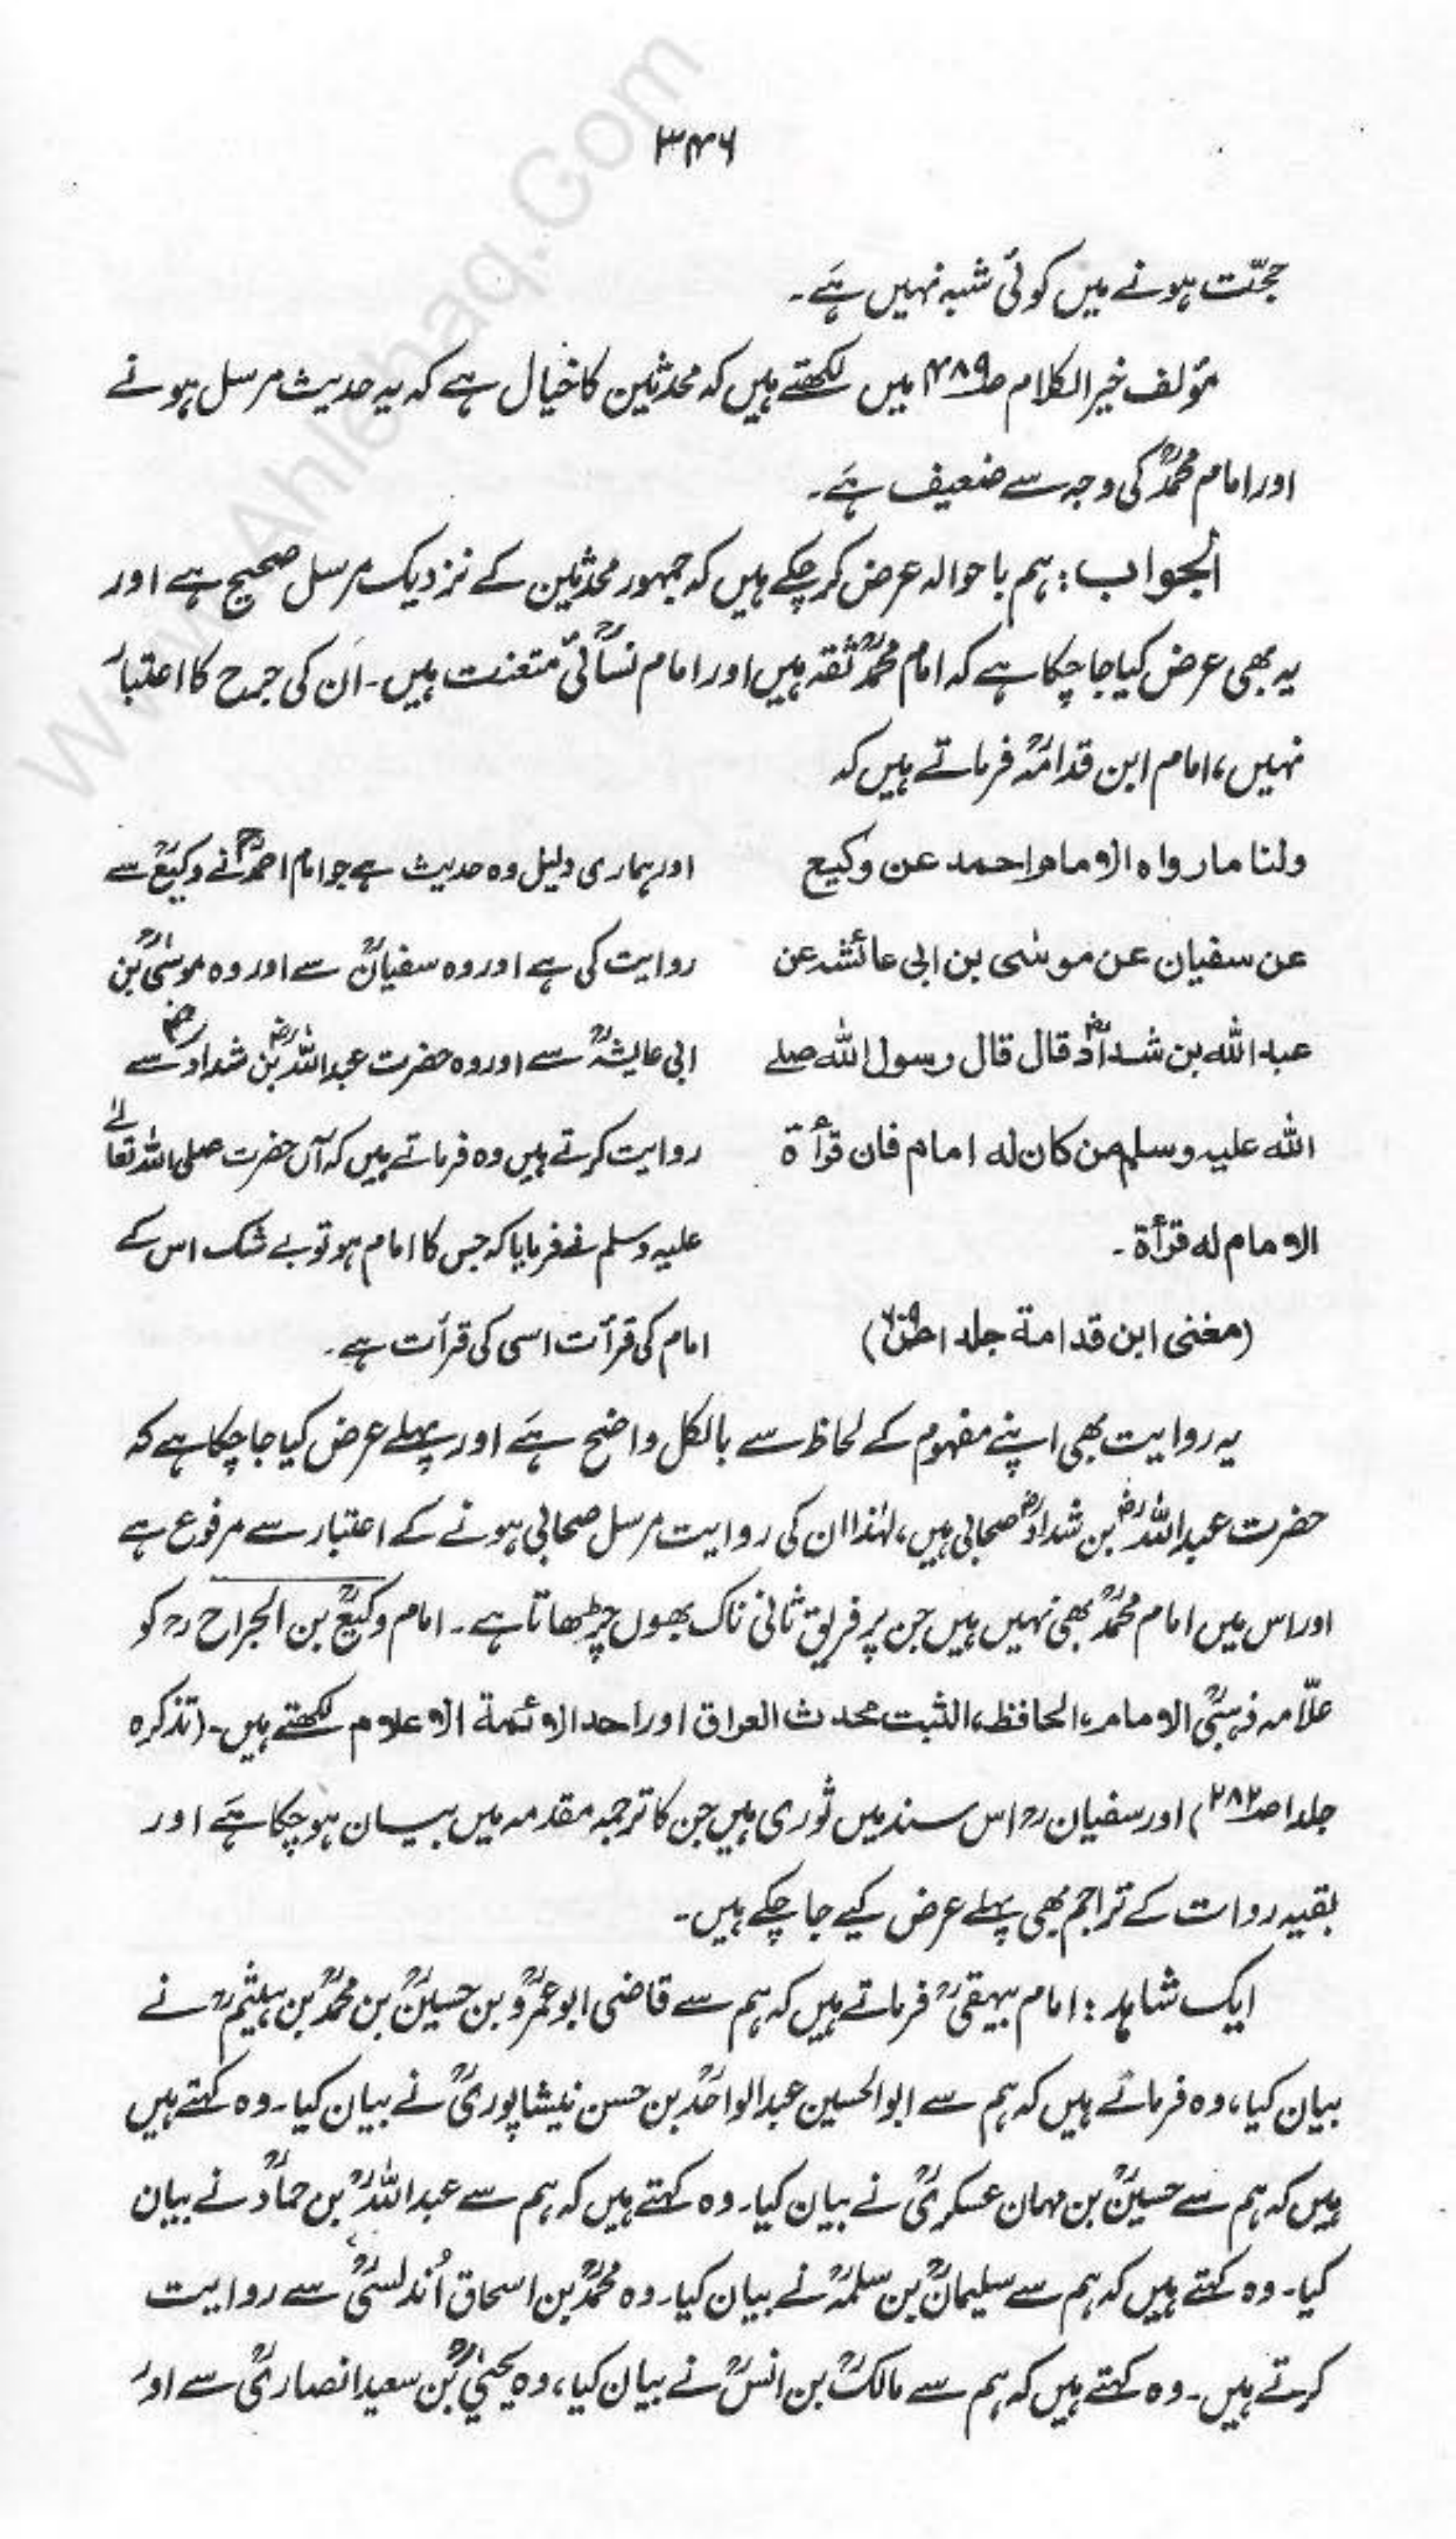 ۳۴۶
حجّت ہونے میں کوئی شبہ نہیں ہے۔
مؤلف خیر الکلام ص۴۸۹ میں لکھتے ہیں کہ محدثین کا خیال ہے کہ یہ حدیث مرسل ہونے
اور امام محمدؒ کی وجہ سے ضعیف ہے۔
الجواب: ہم باحوالہ عرض کر چکے ہیں کہ جمہور محدثین کے نزدیک مرسل صحیح ہے اور
یہ بھی عرض کیا جا چکا ہے کہ امام محمدؒ ثقہ ہیں اور امام نسائیؒ متعنت ہیں۔ اَن کی جرح کا اعتبار
نہیں، امام ابن قدامہؒ فرماتے ہیں کہ
ولنا ما رواہ الامام احمد عن وکیع
عن سفیان عن موسٰی بن ابی عائشہ عن
عبد اللہ بن شدادؓ قال قال رسول اللہ صلے
اللہ علیہ وسلم من کان لہ امام فان قرأۃ
الامام لہ قرأۃ۔
(مغنی ابن قدامۃ جلد ا ص۶۰۹)
اور ہماری دلیل وہ حدیث ہے جو امام احمدؒ نے وکیعؒ سے
روایت کی ہے اور وہ سفیانؒ سے اور وہ موسٰیؒ بن
ابی عایشہؒ سے اور وہ حضرت عبداللہؓ بن شدادؓ سے
روایت کرتے ہیں وہ فرماتے ہیں کہ آں حضرت صلی اللہ تعالٰے
علیہ وسلم نے فرمایا کہ جس کا امام ہو تو بے شک اس کے
امام کی قرأت اسی کی قرأت ہے۔
یہ روایت بھی اپنے مفہوم کے لحاظ سے بالکل واضح ہے اور پہلے عرض کیا جا چکا ہے کہ
حضرت عبداللہؓ بن شدادؓ صحابی ہیں، لہٰذا ان کی روایت مرسل صحابی ہونے کے اعتبار سے مرفوع ہے
اور اس میں امام محمدؒ بھی نہیں ہیں جن پر فریق ثانی ناک بھوں چڑھاتا ہے۔ امام وکیعؒ بن الجراحؒ کو
علّامہ ذہبیؒ الامام، الحافظ، الثبت محدث العراق اور احد الائمۃ الاعلام لکھتے ہیں۔ (تذکرہ
جلد ا ص۲۸۲) اور سفیانؒ اس سند میں ثوری ہیں جن کا ترجمہ مقدمہ میں بیان ہو چکا ہے اور
بقیہ روات کے تراجم بھی پہلے عرض کیے جا چکے ہیں۔
ایک شاہد: امام بیہقیؒ فرماتے ہیں کہ ہم سے قاضی ابو عمرؒو بن حسینؒ بن محمدؒ بن ہیثمؒ نے
بیان کیا، وہ فرماتے ہیں کہ ہم سے ابوالحسین عبدالواحدؒ بن حسن نیشاپوریؒ نے بیان کیا۔ وہ کہتے ہیں
ہیں کہ ہم سے حسینؒ بن مہان عسکریؒ نے بیان کیا۔ وہ کہتے ہیں کہ ہم سے عبداللہؒ بن حمادؒ نے بیان
کیا۔ وہ کہتے ہیں کہ ہم سے سلیمانؒ بن سلمہؒ نے بیان کیا۔ وہ محمدؒ بن اسحاق اُندلسیؒ سے روایت
کرتے ہیں۔ وہ کہتے ہیں کہ ہم سے مالکؒ بن انسؒ نے بیان کیا، وہ یحییٰؒ بن سعید انصاریؒ سے اور
www.Ahlehaq.Com